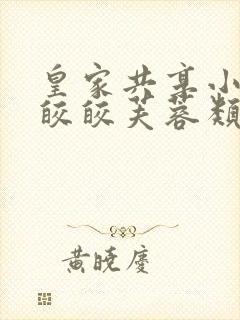 皇家共享小
皎皎芙蓉類
黃曉慶